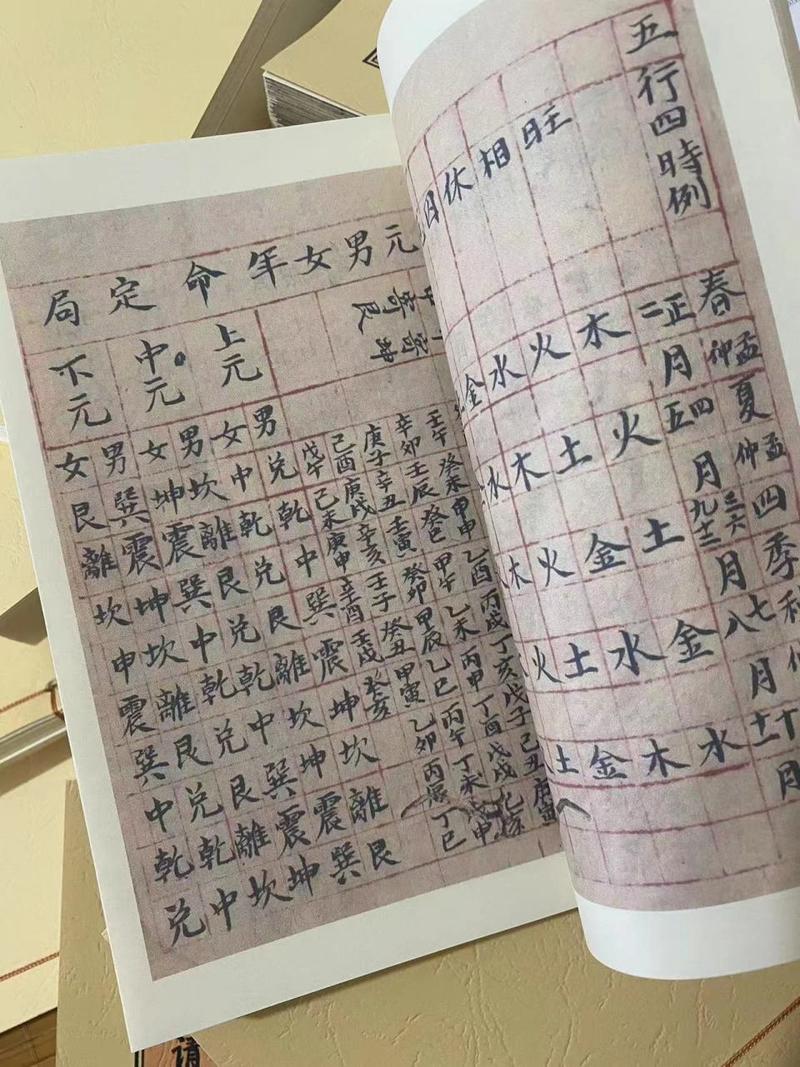 五行四時例
旺木火土金水
相火土金水木
休水木火土金
金水木火土
春孟仲正二月
夏孟仲四五月
四季三六九十二月
七八月
十十一月
元男女年命定局
壬午癸未甲申乙酉丙戌丁亥戊子己丑
辛卯壬辰癸巳甲午乙未丙申丁酉戊戌
庚子辛丑壬寅癸卯甲辰乙巳丙午丁未
己酉庚戌辛亥壬子癸丑甲寅乙卯丙辰丁巳
戊午己未庚申辛酉壬戌癸亥
上元
男兑乾中巽震坤坎離艮
女中乾兑艮離坎坤震巽
中元
男坎離艮兑乾中巽震坤
女坤震巽中乾兑艮離坎
下元
男巽震坤坎離艮兑乾中
女艮離坎申震巽中乾兑
請